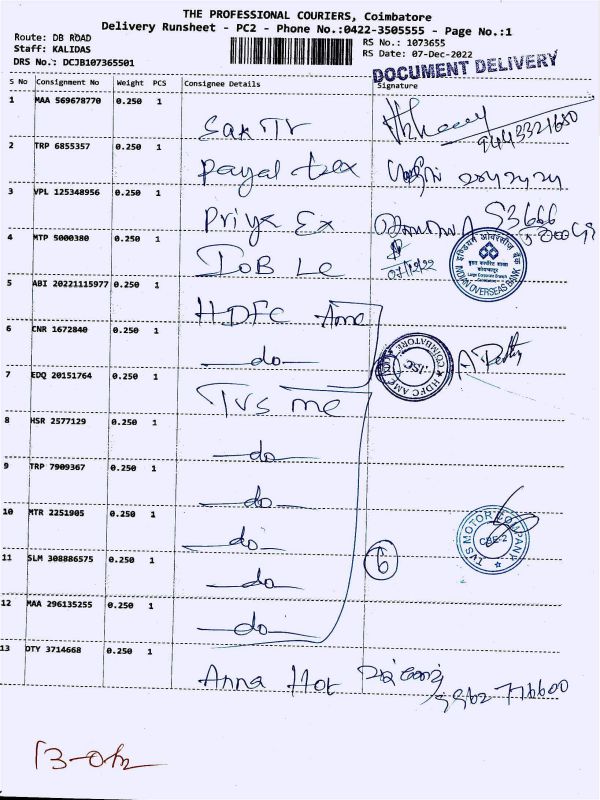 THE PROFESSIONAL COURIERS, Coimbatore
Delivery Runsheet - PC2 - Phone No.:0422-3505555 - Page No.:1
Route: DB ROAD
Staff: KALIDAS
DRS No.: DCJB107365501
RS No.: 1073655
RS Date: 07-Dec-2022
DOCUMENT DELIVERY
S No Consignment No Weight PCS Consignee Details Signature
1 MAA 569678770 0.250 1
9443321680
2 TRP 6855357 0.250 1 Payal Tex
3 VPL 125348956 0.250 1 Priya Ex 53666
4 MTP 5000380 0.250 1 IOB Lc 07/12/22
इंडियन ओवरसीज़ बैंक
INDIAN OVERSEAS BANK
5 ABI 20221115977 0.250 1 HDFC Amc
6 CNR 1672840 0.250 1 -do-
HDFC AMC ISC COIMBATORE
7 EDQ 20151764 0.250 1 TVS mc
8 HSR 2577129 0.250 1 -do-
9 TRP 7909367 0.250 1 -do-
10 MTR 2251905 0.250 1 -do-
TVS MOTOR COMPANY CBE-2
11 SLM 308886575 0.250 1 -do- 6
12 MAA 296135255 0.250 1 -do-
13 DTY 3714668 0.250 1 Anna Hot